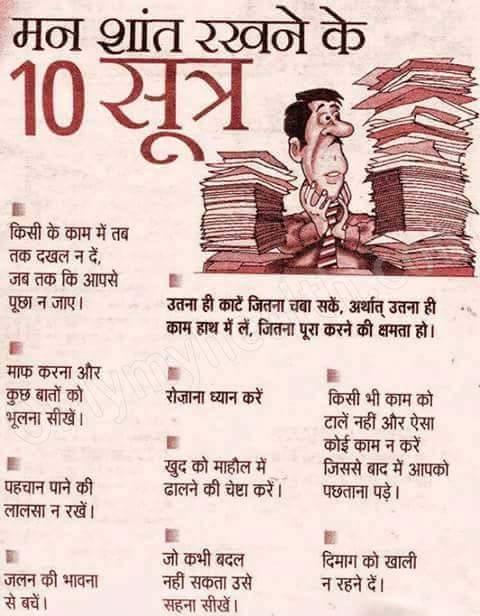 मन शांत रखने के
10 सूत्र
किसी के काम में तब
तक दखल न दें,
जब तक कि आपसे
पूछा न जाए।
उतना ही काटें जितना चबा सकें, अर्थात् उतना ही
काम हाथ में लें, जितना पूरा करने की क्षमता हो।
माफ करना और
कुछ बातों को
भूलना सीखें।
रोज़ाना ध्यान करें
किसी भी काम को
टालें नहीं और ऐसा
कोई काम न करें
जिससे बाद में आपको
पछताना पड़े।
पहचान पाने की
लालसा न रखें।
खुद को माहौल में
ढालने की चेष्टा करें।
जलन की भावना
से बचें।
जो कभी बदल
नहीं सकता उसे
सहना सीखें।
दिमाग को खाली
न रहने दें।